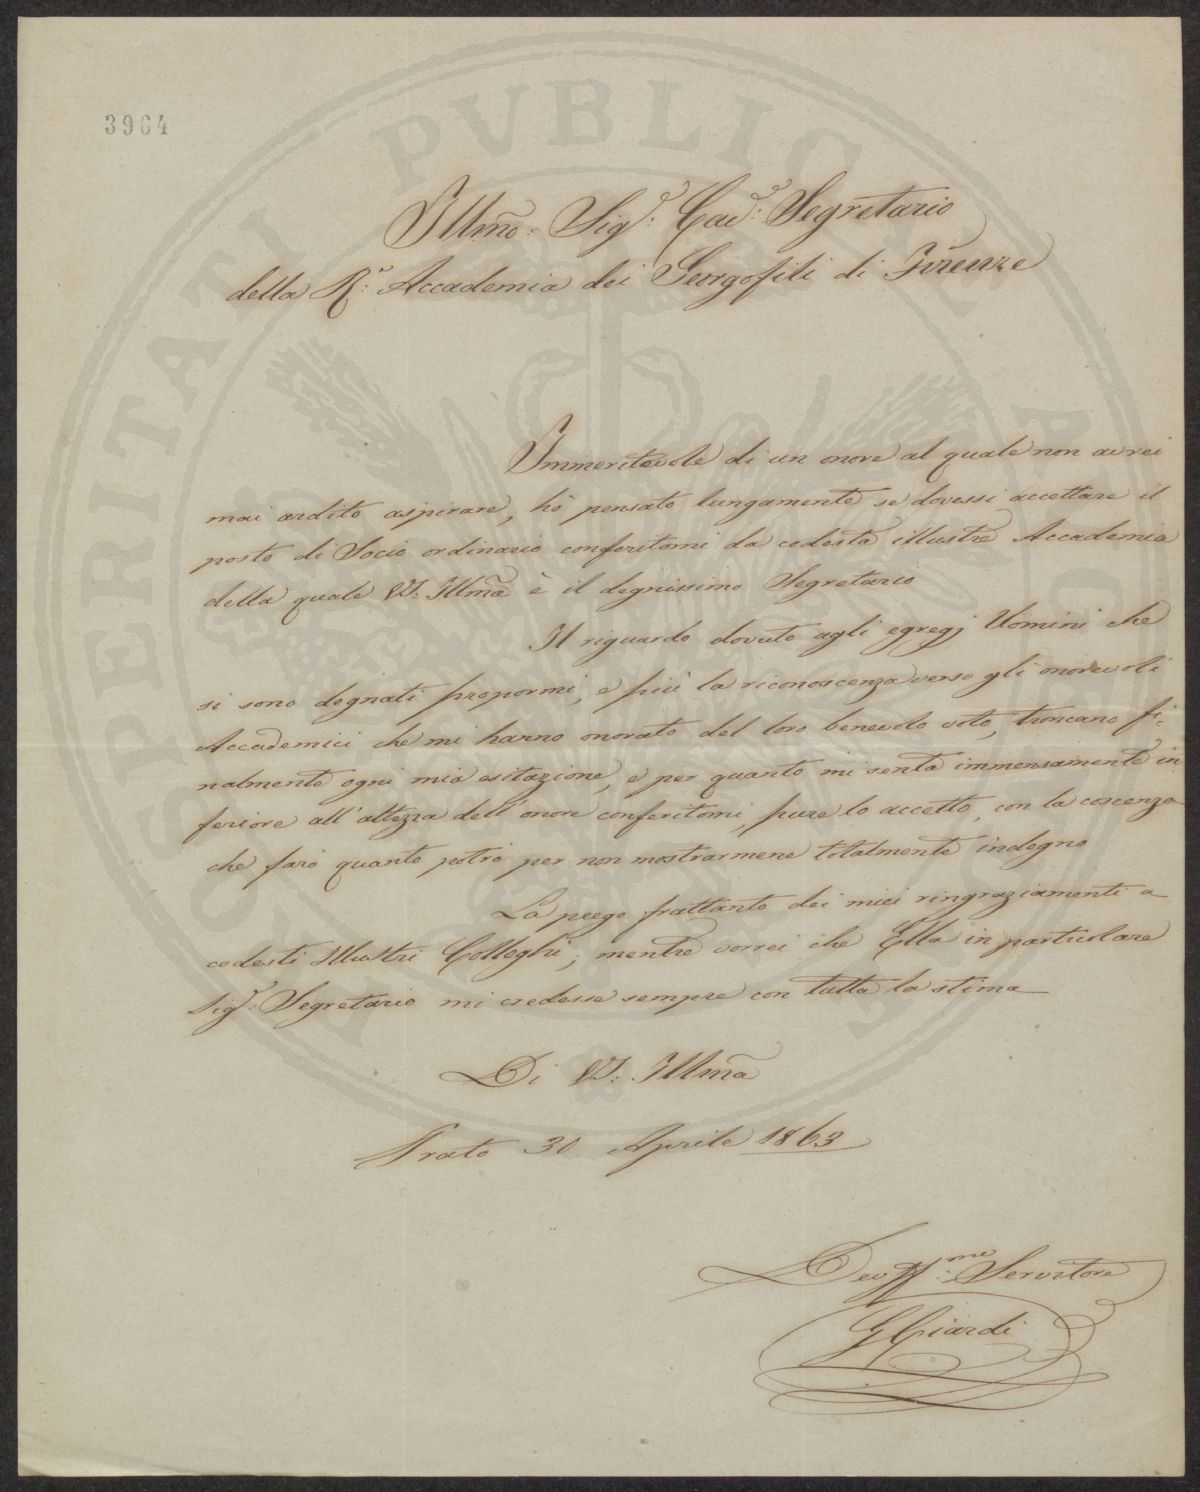 3964
Illmo. Sigr. Cavr. Segretario
della R. Accademia dei Georgofili di Firenze
Immeritevole di un onore al quale non avrei
mai ardito aspirare, hò pensato lungamente se dovessi accettare il
posto di Socio ordinario conferitomi da codesta illustre Accademia
della quale V.S. Illma è il degnissimo Segretario
Il riguardo dovuto agli egregj Uomini che
si sono degnati propormi, e più la riconoscenza verso gli onorevoli
Accademici che mi hanno onorato del loro benevolo voto, troncano fi-
nalmente ogni mia esitazione, e per quanto mi senta immensamente in
feriore all'altezza dell'onore conferitomi, pure lo accetto, con la coscenza
che farò quanto potrò per non mostrarmene totalmente indegno
La prego frattanto dei miei ringraziamenti a
codesti Illustri Colleghi; mentre vorrei che Ella in particolare
Sigr. Segretario mi credesse sempre con tutta la stima
Di V.S. Illma
Prato 30 Aprile 1863
Dev Servitore
G Ciardi
PROSPERITATI PVBLICAE